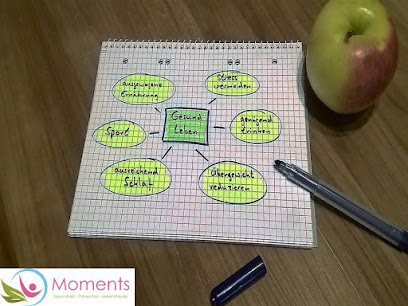 ausgewogene
Ernährung
Stress
vermeiden
Gesund
Leben
genügend
trinken
Sport
ausreichend
Schlaf
Übergewicht
reduzieren
Moments
Gesundheit · Prävention · Lebensfreude